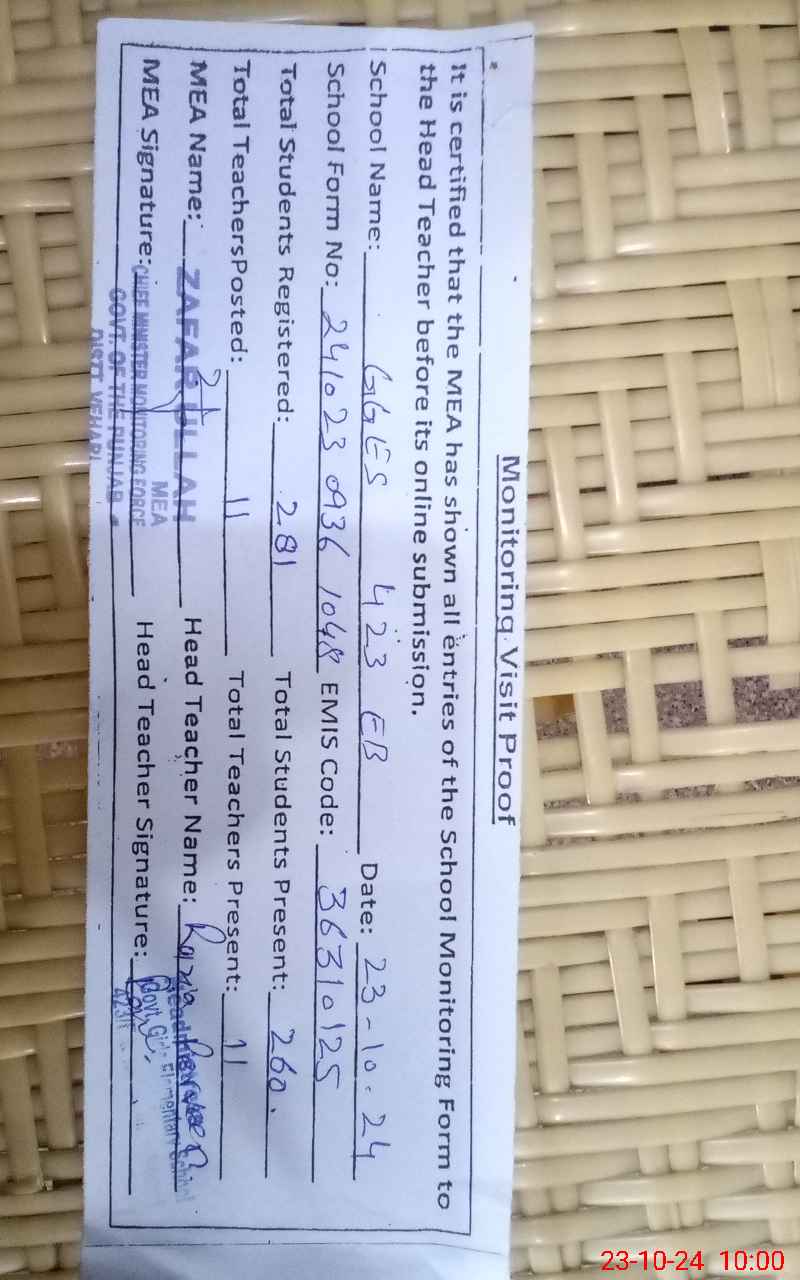 Monitoring Visit Proof
It is certified that the MEA has shown all entries of the School Monitoring Form to
the Head Teacher before its online submission.
School Name: GGES 423 EB Date: 23-10-24
School Form No: 241023 0936 1048 EMIS Code: 36310125
Total Students Registered: 281 Total Students Present: 260.
Total TeachersPosted: 11 Total Teachers Present: 11
MEA Name: ZAFAR ULLAH Head Teacher Name:
MEA Signature: Head Teacher Signature:
MEA
CHIEF MINISTER MONITORING FORCE
GOVT. OF THE PUNJAB
DISTT. VEHARI
Headmistress
Govt. Girls Elementary School
23-10-24 10:00